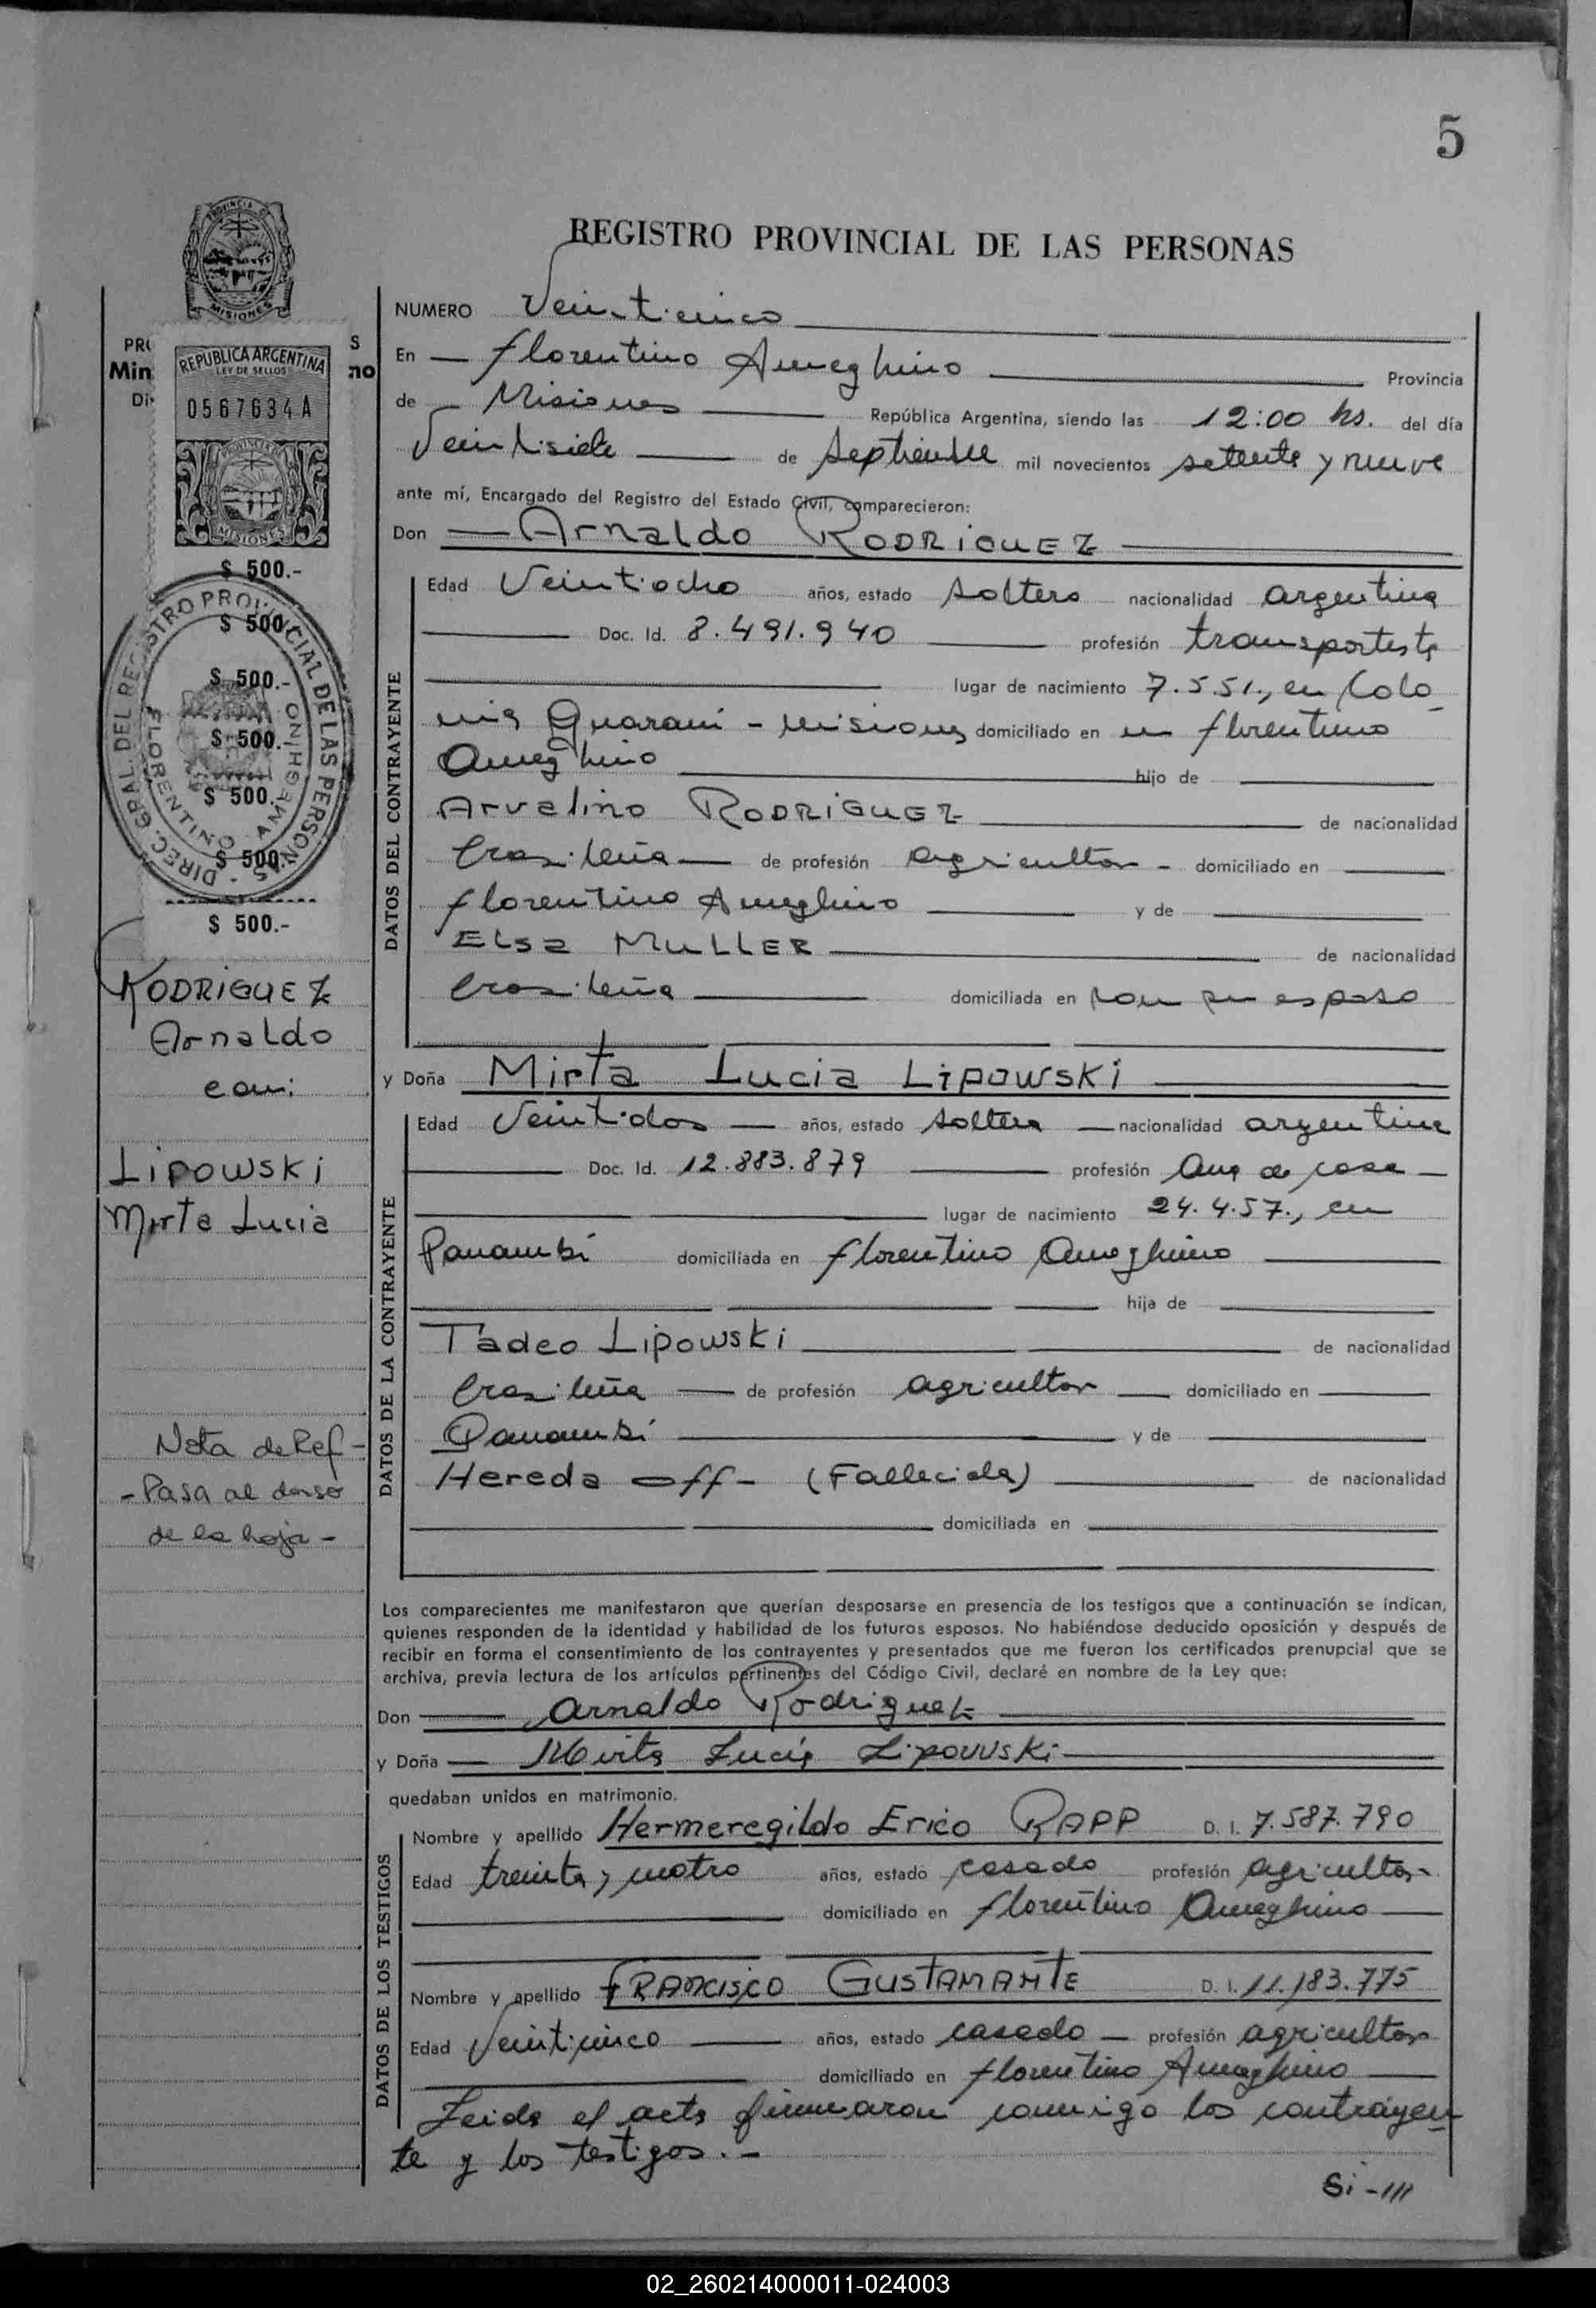 5
PROVINCIA DE
MISIONES
REGISTRO PROVINCIAL DE LAS PERSONAS
NUMERO Veinticinco
En — Florentino Ameghino — Provincia
de — Misiones — República Argentina, siendo las 12:00 hs. del día
Veintisiete — de Septiembre mil novecientos setenta y nueve
ante mí, Encargado del Registro del Estado Civil, comparecieron:
Don — Arnaldo RODRIGUEZ —
DATOS DEL CONTRAYENTE
Edad Veintiocho años, estado soltero nacionalidad argentina
— Doc. Id. 8.491.940 — profesión transportista
— lugar de nacimiento 7.5.51., en Colo_
nia Guarani - Misiones domiciliado en en Florentino
Ameghino — hijo de —
Arvelino RODRIGUEZ — de nacionalidad
brasileña — de profesión agricultor - domiciliado en —
Florentino Ameghino — y de —
Elsa MULLER — de nacionalidad
brasileña — domiciliada en con su esposo
y Doña Mirta Lucia Lipowski —
DATOS DE LA CONTRAYENTE
Edad Veintidos — años, estado soltera — nacionalidad argentina
— Doc. Id. 12.883.879 — profesión Ama de casa —
— lugar de nacimiento 24.4.57., en
Panambí domiciliada en Florentino Ameghino —
— hija de —
Tadeo Lipowski — de nacionalidad
brasileña — de profesión agricultor — domiciliado en —
Panambí — y de —
Hereda off - (Fallecida) — de nacionalidad
— domiciliada en —
Los comparecientes me manifestaron que querían desposarse en presencia de los testigos que a continuación se indican,
quienes responden de la identidad y habilidad de los futuros esposos. No habiéndose deducido oposición y después de
recibir en forma el consentimiento de los contrayentes y presentados que me fueron los certificados prenupcial que se
archiva, previa lectura de los artículos pertinentes del Código Civil, declaré en nombre de la Ley que:
Don — Arnaldo Rodriguez —
y Doña — Mirta Lucia Lipowski —
quedaban unidos en matrimonio.
DATOS DE LOS TESTIGOS
Nombre y apellido Hermeregildo Erico RAPP D. I. 7.587.790
Edad treinta y cuatro años, estado casado profesión agricultor
— domiciliado en Florentino Ameghino —
Nombre y apellido FRANCISCO GUSTAMANTE D. I. 11.183.775
Edad Veinticinco — años, estado casado — profesión agricultor
— domiciliado en Florentino Ameghino —
Leida el acta firmaron conmigo los contrayen_
te y los testigos.-
Si -///
PR
S
Min
no
Di
REPUBLICA ARGENTINA
LEY DE SELLOS
0567634A
PROVINCIA DE
MISIONES
$ 500.-
$ 500
$ 500.-
$ 500.-
$ 500.
$ 500.
$ 500.-
DIREC. GRAL. DEL REGISTRO PROVINCIAL DE LAS PERSONAS
FLORENTINO AMEGHINO
RODRIGUEZ
Arnaldo
con:
Lipowski
Mirta Lucia
Nota de Ref -
- Pasa al dorso
de la hoja -
02_260214000011-024003